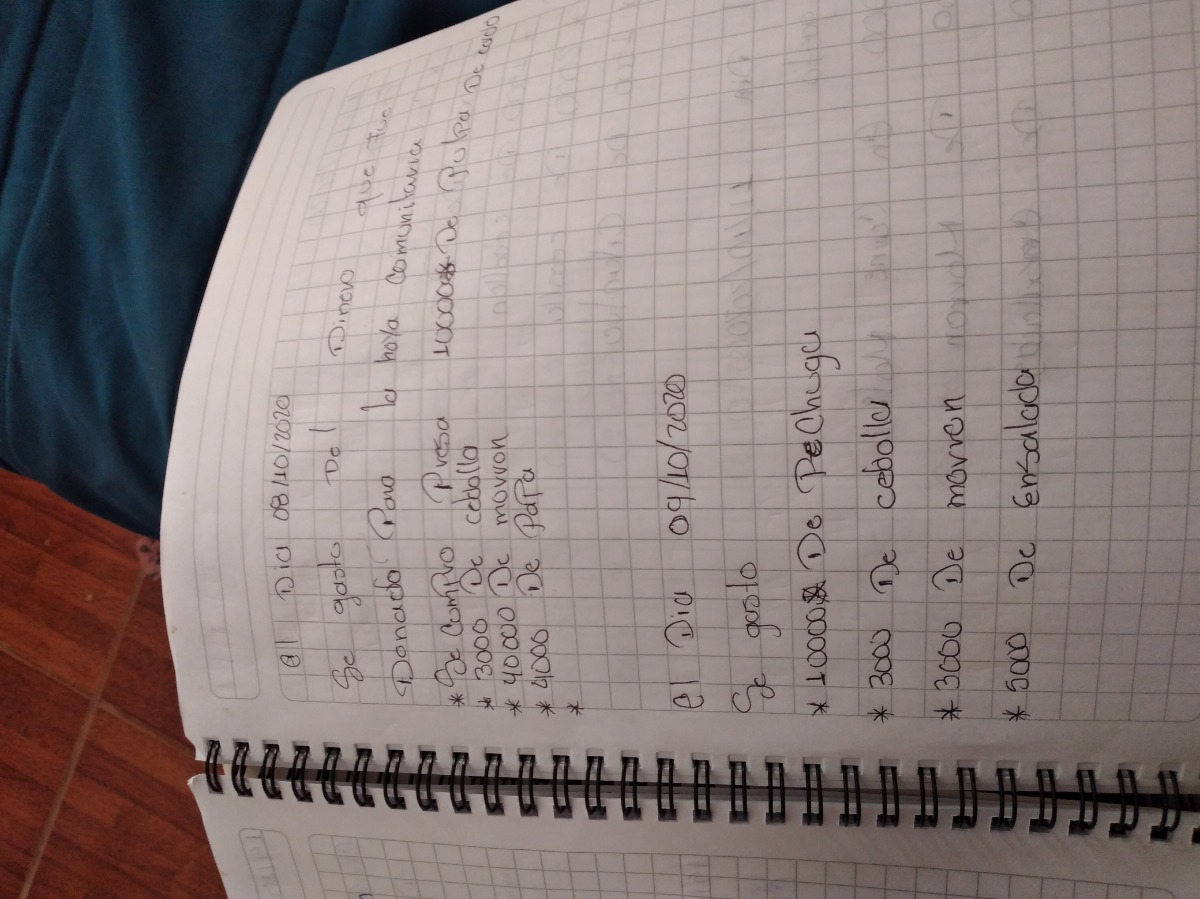 el Dia 08/10/2020
Se gasto Del Dinero que fue
Donado Para la hoya comunitaria
* Se compro Presa 10000 De Pulpa De cerdo
* 3000 De cebolla
* 40000 De morron
* 4000 De PaPa
*
el Dia 09/10/2020
Se gasto
* 10000 De PeChuga
* 3000 De cebolla
* 3000 De morren
* 5000 De Ensalada